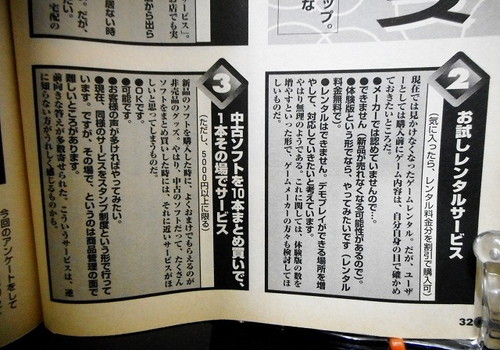 2
お試しレンタルサービス
(気に入ったら、レンタル料金分を割引で購入可)
現在では見かけなくなったゲームレンタル。だが、ユーザ
ーとしては購入前にゲーム内容は、自分自身の目で確かめ
ておきたいところだ。
●メーカーでは認めていませんので…。
●できません(新品が売れなくなる可能性があるので)。
●体験版という形でなら、やってみたいです(レンタル
料金無料で)。
●レンタルはできません。デモプレイができる場所を増
やして、対応していきたいと考えています。
やはり無理のようである。これに関しては、体験版の数を
増やすといった形で、ゲームメーカーの方々も検討してほ
しいものだ。
3
中古ソフトを10本まとめ買いで、
1本その場でサービス
(ただし、5000円以上に限る)
新品のソフトを購入した時に、よくおまけでもらえるのが
非売品のグッズ。やはり、中古のソフトだって、たくさん
ソフトをまとめ買いした時には、それに近いサービスがほ
しいと思ってしまうものだ。
●OKです。
●可能です。
●お客様の声が多ければやってみたい。
●現在、同様のサービスをスタンプ制度という形で行って
います。ですが、その場で、というのは商品管理の面で
難しいところがあります。
前向きな答えが多数寄せられた。こういうサービスは、連
に知らない方がうれしく感じるものかも。
32
今回のアンケートをして